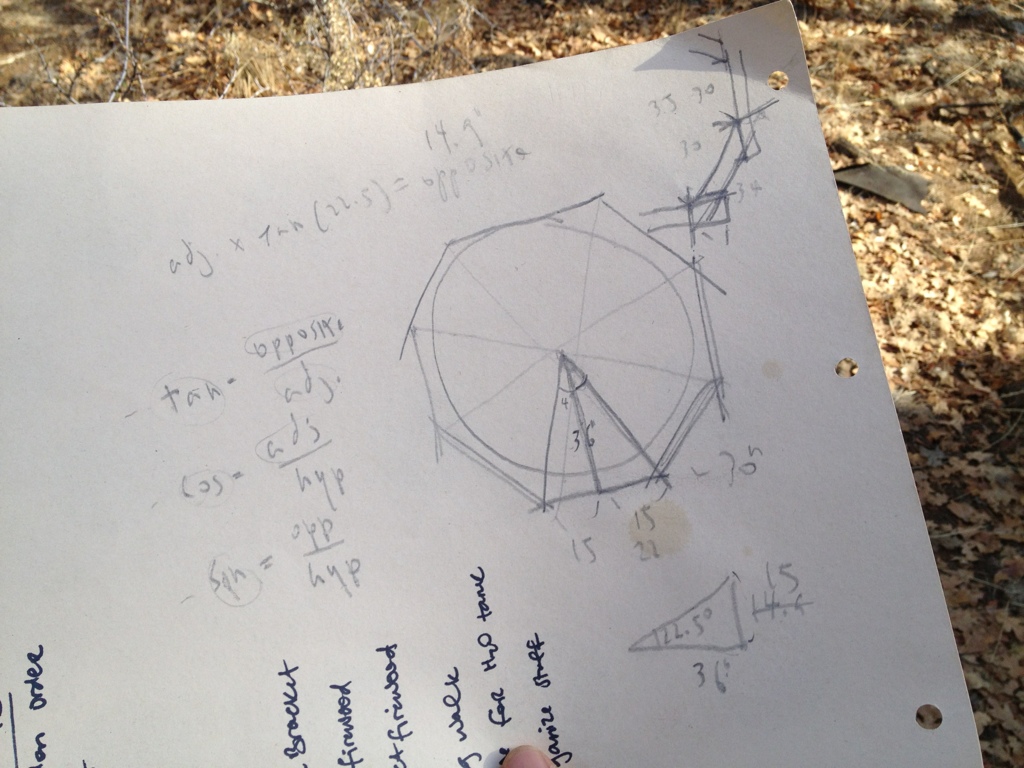 14.9"
adj. x tan (22.5) = opposite
tan = opposite
adj.
cos = adj
hyp
sin = opp
hyp
35 30
30
34
36
30"
15
15
22
22.5°
15
14.9
36"
order
Bracket
firewood
firewood
walk
for H2O tank
stuff